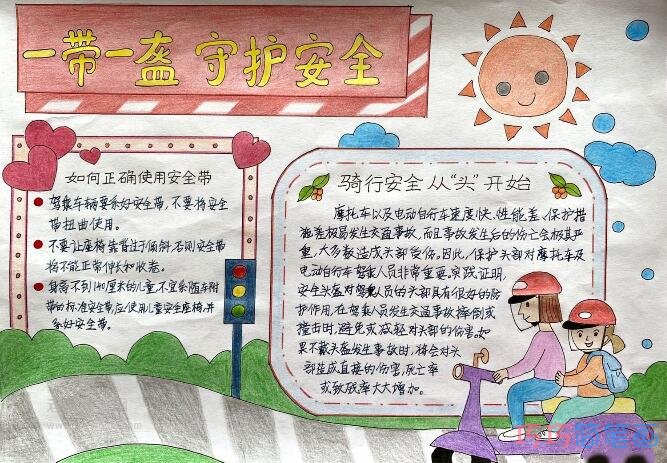 一带一盔 守护安全
如何正确使用安全带
驾乘车辆要系好安全带,不要将安全
带扭曲使用。
不要让座椅靠背过于倾斜,否则安全带
将不能正带伸长和收卷。
身高不到140厘米的儿童,不宜系随车附
带的标准安全带,应使用儿童安全座椅,并
系好安全带。
骑行安全 从“头”开始
摩托车以及电动自行车速度快、性能差、保护措
施差极易发生交通事故,而且事故发生后的伤亡会极其严
重,大多数造成头部受伤。因此,保护头部对摩托车及
电动自行车驾乘人员非常重要。实践证明,
安全头盔对驾乘人员的头部具有很好的防
护作用,在驾乘人员发生交通事故摔倒或
撞击时,避免或减轻对头部的伤害。如
果不戴头盔发生事故时,将会对头
部造成直接的伤害,死亡率
或致残率大大增加。